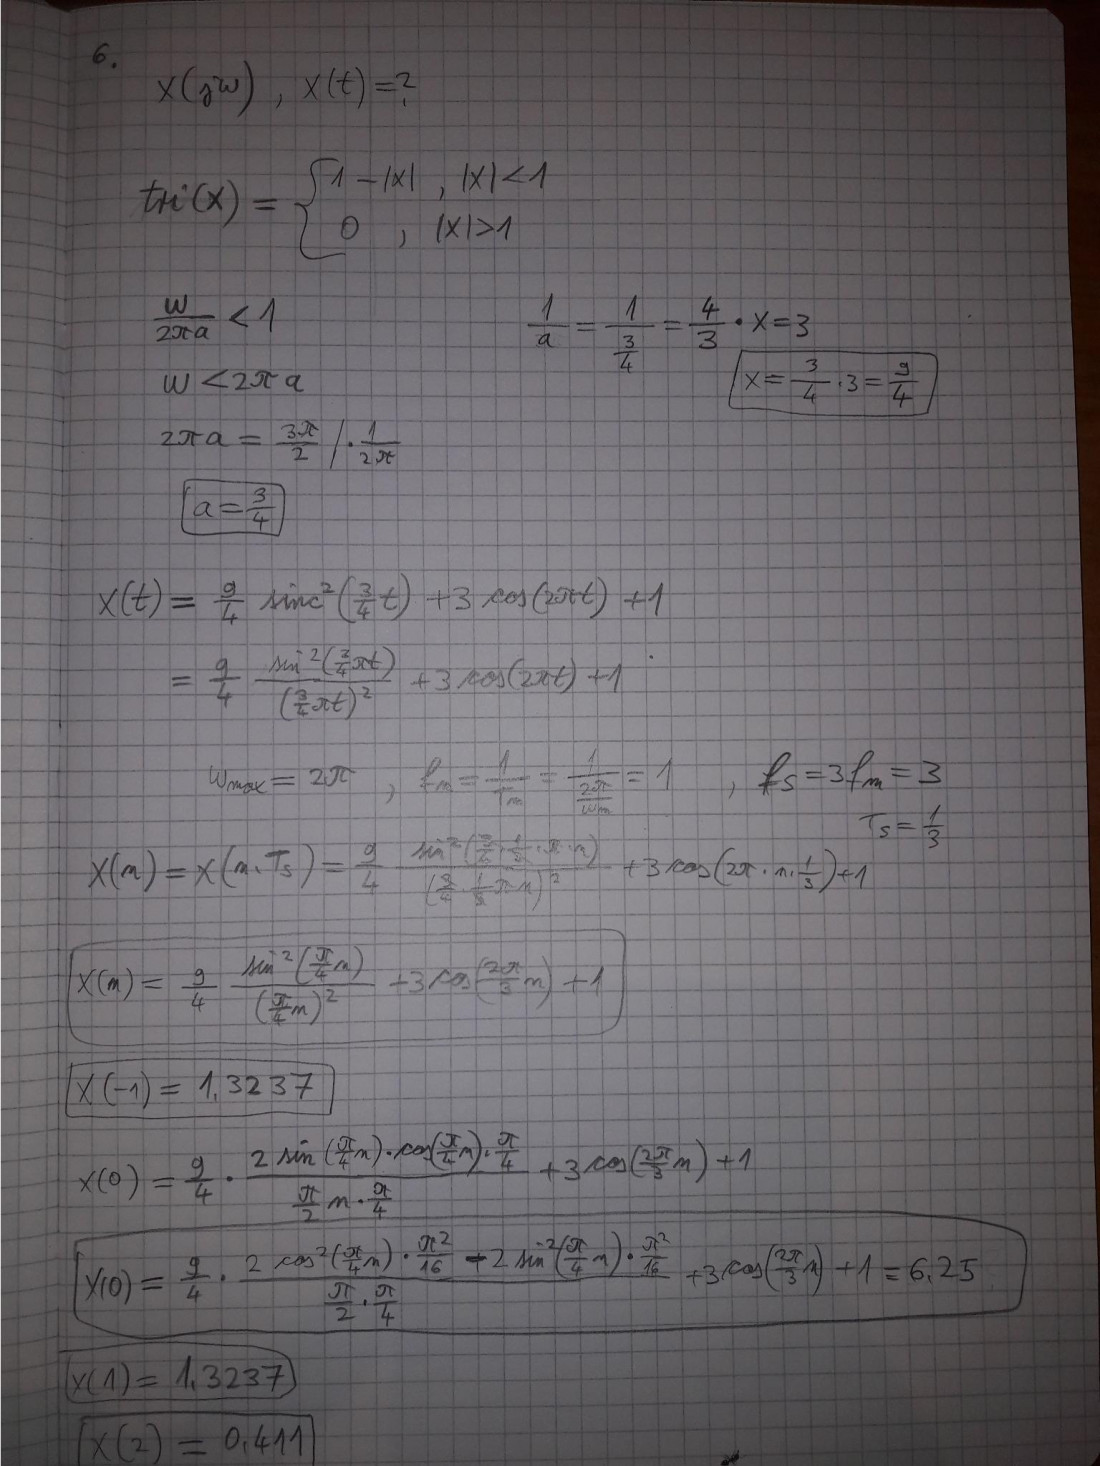 6.
X(jw) , X(t)=?
tri(x) = { 1-|x| , |x|<1
0 , |x|>1
w/2πa < 1
1/a = 1/(3/4) = 4/3 · x = 3
w < 2πa
x = 3/4 · 3 = 9/4
2πa = 3π/2 / · 1/2π
a = 3/4
X(t) = 9/4 sinc²(3/4 t) + 3 cos(2πt) + 1
= 9/4 sin²(3/4 πt)/(3/4 πt)² + 3 cos(2πt) + 1
wmax = 2π , fm = 1/Tm = 1/(2π/wm) = 1 , fs = 3fm = 3
Ts = 1/3
X(n) = X(n·Ts) = 9/4 sin²(3/4 · 1/3 · π · n)/(3/4 · 1/3 πn)² + 3 cos(2π · n · 1/3) + 1
X(n) = 9/4 sin²(π/4 n)/(π/4 n)² + 3 cos(2π/3 n) + 1
X(-1) = 1,3237
X(0) = 9/4 · 2 sin(π/4 n) · cos(π/4 n) · π/4 / (π/2 n · π/4) + 3 cos(2π/3 n) + 1
X(0) = 9/4 · (2 cos²(π/4 n) · π²/16 - 2 sin²(π/4 n) · π²/16)/(π/2 · π/4) + 3 cos(2π/3 n) + 1 = 6,25
X(1) = 1,3237
X(2) = 0,411